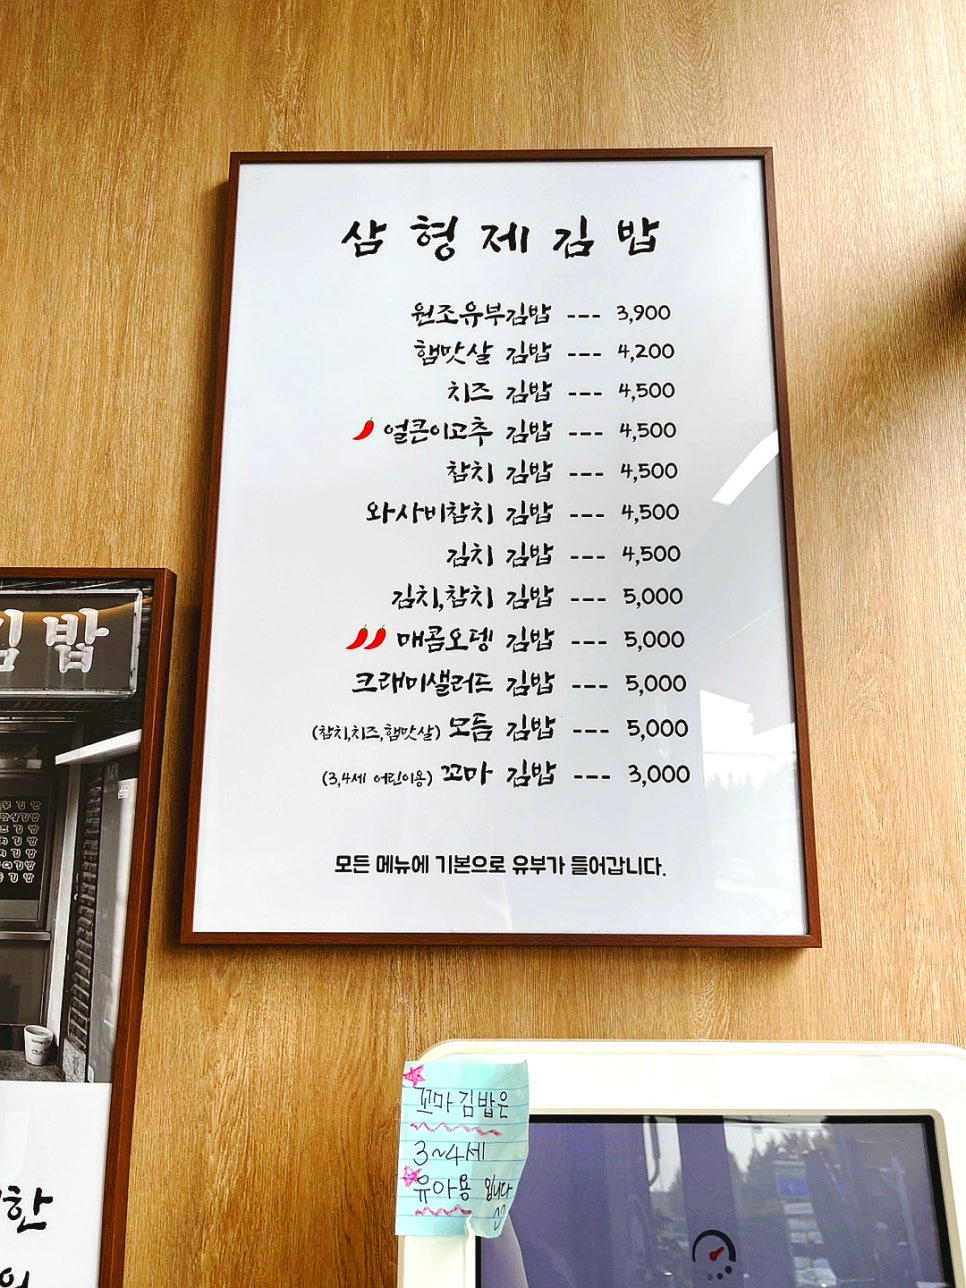 삼형제김밥
원조유부김밥 --- 3,900
햄맛살 김밥 --- 4,200
치즈 김밥 --- 4,500
얼큰이고추 김밥 --- 4,500
참치 김밥 --- 4,500
와사비참치 김밥 --- 4,500
김치 김밥 --- 4,500
김치,참치 김밥 --- 5,000
매콤오뎅 김밥 --- 5,000
크래미샐러드 김밥 --- 5,000
(참치,치즈,햄맛살) 모듬 김밥 --- 5,000
(3,4세 어린이용) 꼬마 김밥 --- 3,000
모든 메뉴에 기본으로 유부가 들어갑니다.
김밥
한
꼬마김밥은
3~4세
유아용 입니다